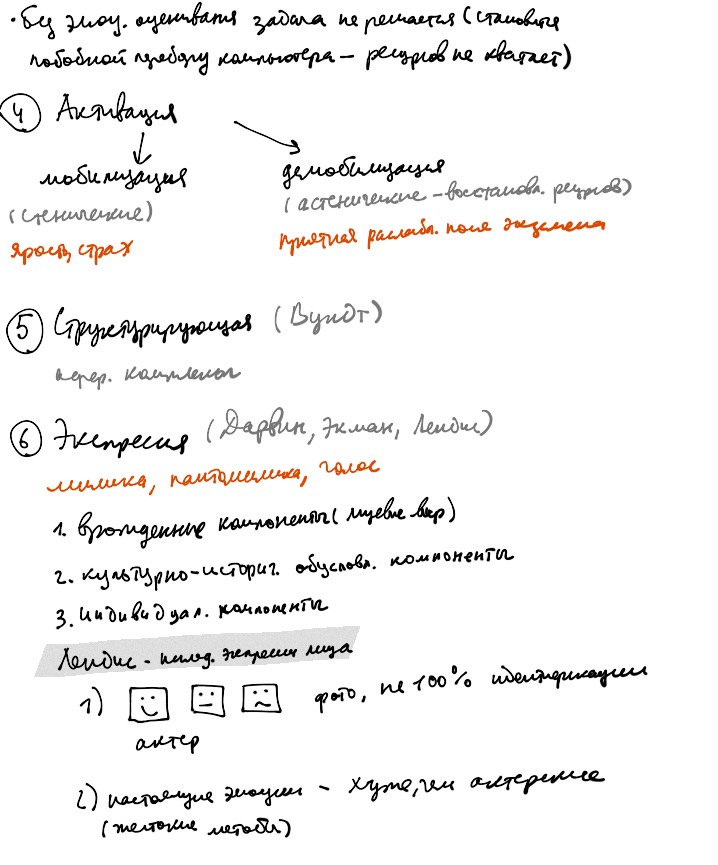 · Без эмоц. оценивания задача не решается (становится
подобной перебору компьютера – ресурсов не хватает)
4 Активация
мобилизация
демобилизация
(стенические)
(астенические – восстановл. ресурсов)
Ярость, страх
приятная расслабл. после экзамена
5 Структурирующая (Вундт)
перер. комплексы
6 Экспрессия (Дарвин, Экман, Лендис)
мимика, пантомимика, голос
1. врожденные компоненты (лицевые выр)
2. культурно-историч. обусловл. компоненты
3. индивидуал. компоненты
Лендис - исслед. экспрессии лица
1) фото, не 100% идентификации
актер
2) настоящие эмоции – хуже, чем актерские
(жестокие методы)